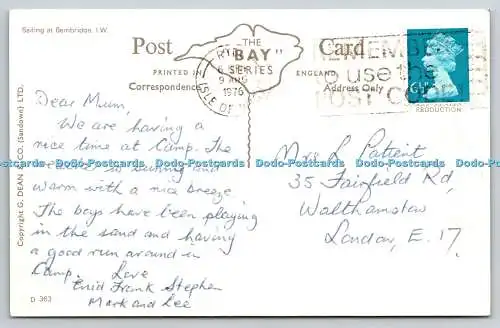 Sailing at Bembridge, I.W.
Post
THE
"BAY"
SERIES
Card
PRINTED IN
ENGLAND
Correspondence
Address Only
9 AUG
1976
ISLE OF
REMEMBER
use the
POST CODE
6½P
PRODUCTION
Dear Mum,
We are having a
nice time at Camp. The
is sunny and
warm with a nice breeze.
The boys have been playing
in the sand and having
a good run around in
Camp. Love
Enid Frank Stephen
Mark and Lee
Mrs L Patient
35 Fairfield Rd,
Walthamstow
London, E. 17.
Copyright G. DEAN & CO. (Sandown) LTD.
D 363
Dodo-Postcards Dodo-Postcards Dodo-Postcards Dodo-Postcards Dodo-Postcards Dodo-Postcards